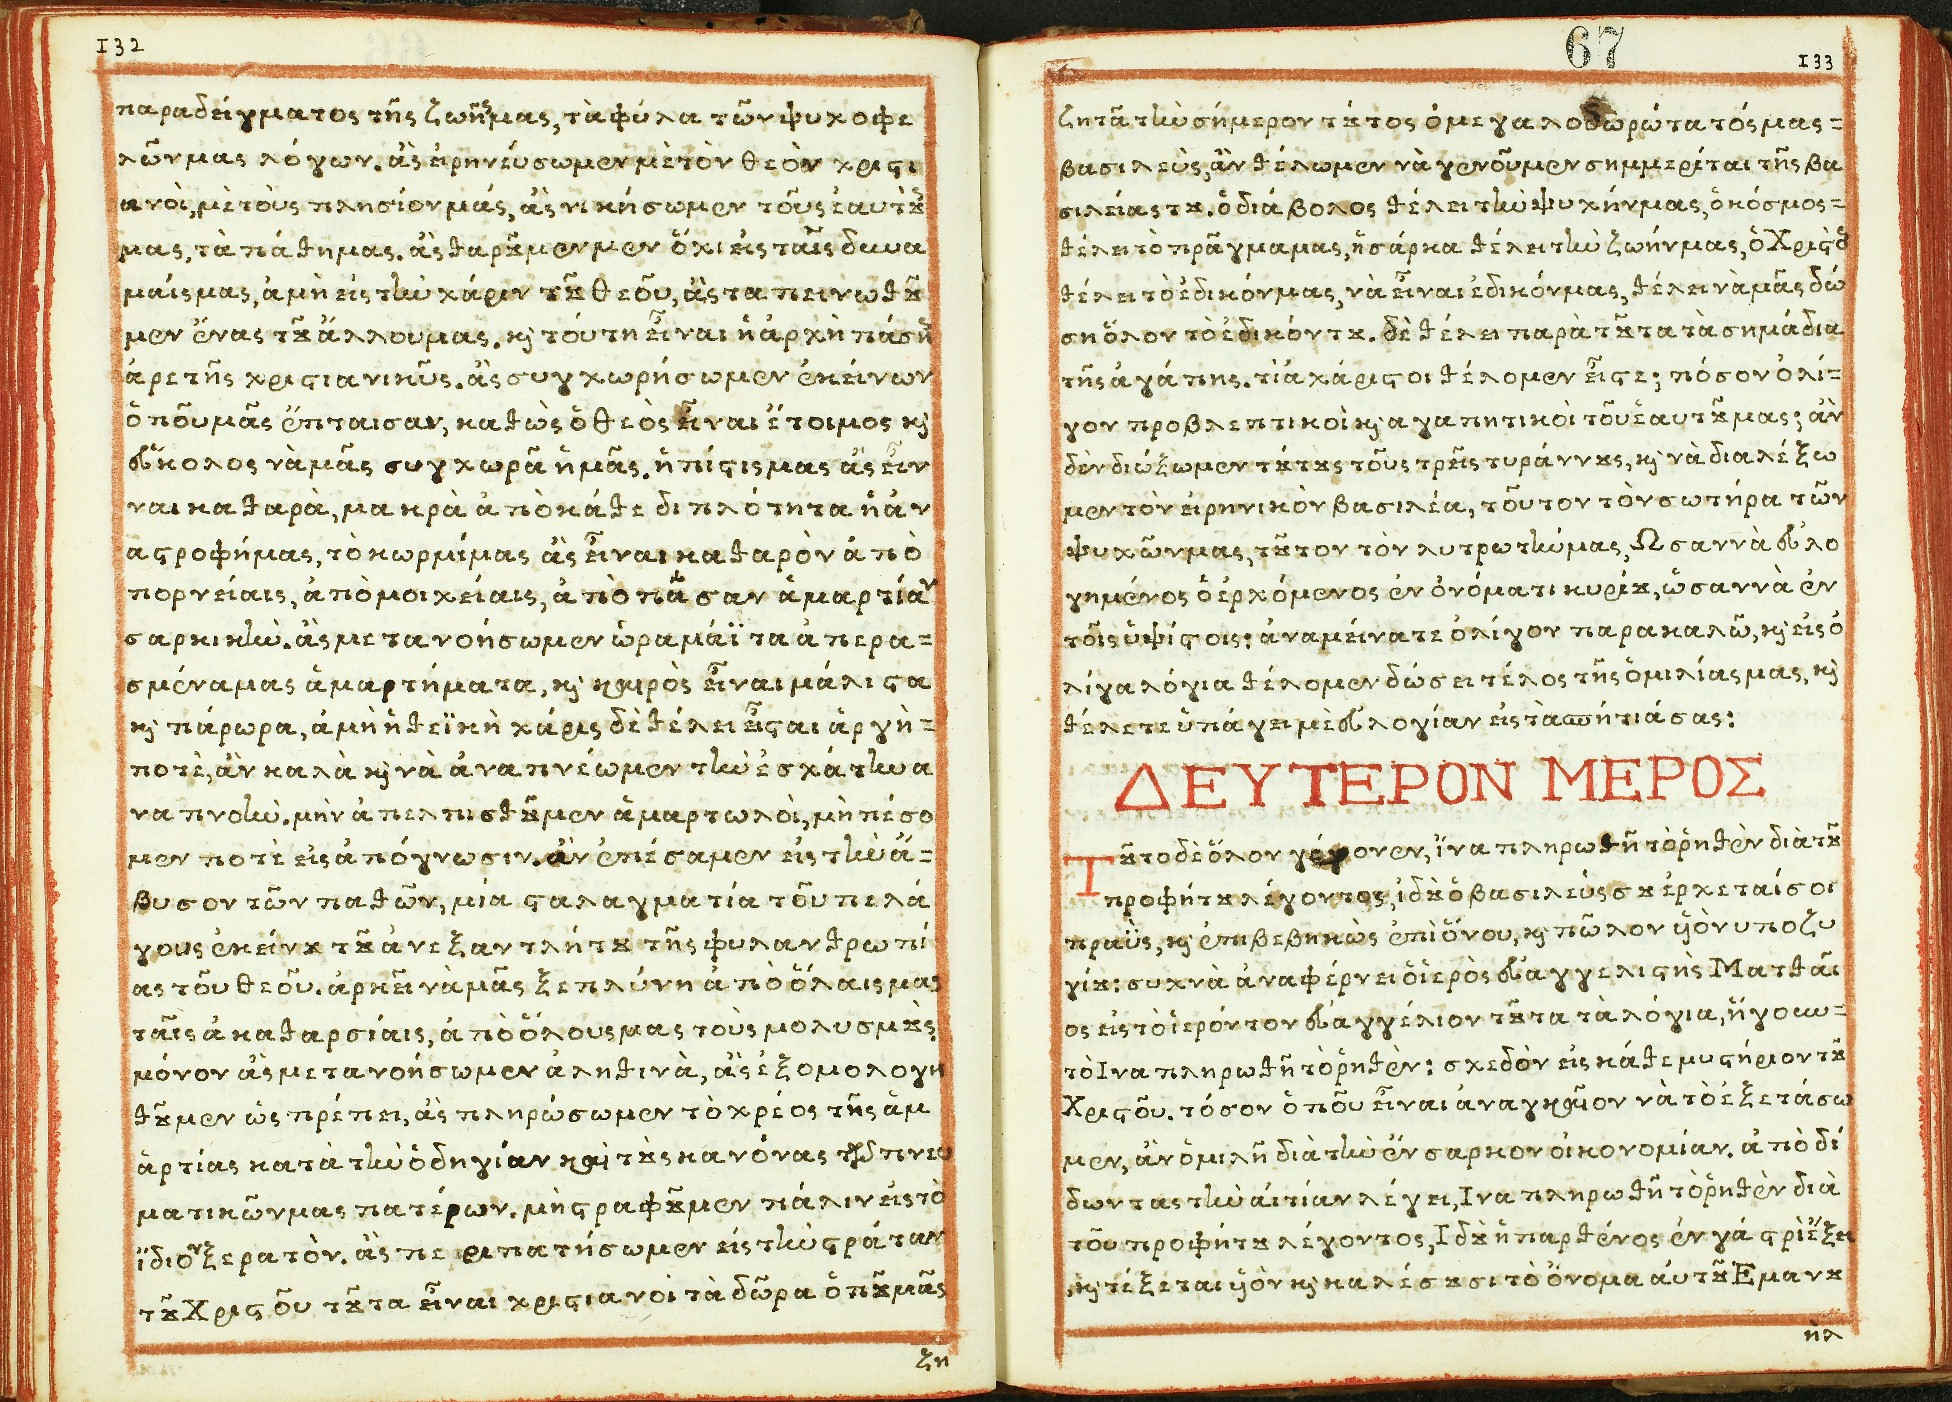 132
παραδείγματος τῆς ζωῆς μας, τὰ φύλα τῶν ψυχοφε
λῶν μας λόγων. ἂς εἰρηνεύσωμεν μὲ τὸν θεὸν χριστι
ανοὶ, μὲ τοὺς πλησίον μάς, ἂς νικήσωμεν τοὺς ἑαυτούς
μας, τὰ πάθημας. ἂς θαροῦμεν μεν ὄχι εἰς ταῖς δυνα
μαίς μας, ἀμὴ εἰς τὴν χάριν τοῦ θεοῦ, ἂς ταπεινωθοῦ
μεν ἕνας τοῦ ἄλλου μας. καὶ τούτη εἶναι ἡ ἀρχὴ πάσης
ἀρετῆς χριστιανικῆς. ἂς συγχωρήσωμεν ἐκείνων
ὁποῦ μᾶς ἔπταισαν, καθὼς ὁ θεὸς εἶναι ἕτοιμος καὶ
εὔκολος νὰ μᾶς συγχωρᾶ ἡμᾶς. ἡ πίστις μας ἂς εἶν
ναι καθαρὰ, μακρὰ ἀπὸ κάθε διπλότητα ἡ ἀν
αστροφήμας, τὸ κωρμίμας ἂς εἶναι καθαρὸν ἀπὸ
πορνείαις, ἀπὸ μοιχείαις, ἀπὸ πᾶσαν ἁμαρτίαν
σαρκικὴν. ἂς μετανοήσωμεν ὡραμάϊ τα ἀπερα=
σμένα μας ἁμαρτήματα, καὶ καιρὸς εἶναι μάλιστα
καὶ πάρωρα, ἀμὴ ἡ θεϊκὴ χάρις δὲ θέλει εἶσται ἀργὴ=
ποτὲ, ἀν καλὰ καὶ νὰ ἀναπνέωμεν τὴν ἐσχάτην α
ναπνοὴν. μὴν ἀπελπισθοῦμεν ἁμαρτωλοὶ, μὴ πέσο
μεν ποτὲ εἰς ἀπόγνωσιν. ἀν ἐπέσαμεν εἰς τὴν ἄ=
βυσον τῶν παθῶν, μία σταλαγματία τοῦ πελά
γους ἐκείνου τοῦ ἀνεξαντλήτου τῆς φυλανθρωπί
ας τοῦ θεοῦ. ἀρκεῖ νὰ μᾶς ξεπλύνη ἀπὸ ὅλαις μας
ταῖς ἀκαθαρσίαις, ἀπὸ ὅλους μας τοὺς μολυσμούς.
μόνον ἂς μετανοήσωμεν ἀληθινὰ, ἂς ἐξομολογη
θοῦμεν ὡς πρέπει, ἂς πληρώσωμεν τὸ χρέος τῆς ἁμ
ἁρτίας κατὰ τὴν ὁδηγίαν καὶ τοὺς κανόνας τῶν πνευ
ματικῶν μας πατέρων. μὴ στραφοῦμεν πάλιν εἰς τὸ
ἴδιον ξερατὸν. ἂς περιπατήσωμεν εἰς τὴν στράταν
τοῦ Χριστοῦ τοῦτα εἶναι χριστιανοὶ τὰ δῶρα ὁποῦ μᾶς
ζη
67
133
ζητᾶ τὴν σήμερον τοῦτος ὁ μεγαλοδωρώτατός μας=
βασιλεὺς, ἂν θέλωμεν νὰ γενοῦμεν σημμερίται τῆς βα
σιλείας του. ὁ διάβολος θέλει τὴν ψυχήν μας, ὁ κόσμος=
θέλει τὸ πρᾶγμα μας, ἡ σάρκα θέλει τὴν ζωήν μας, ὁ Χριστὸς
θέλει τὸ ἐδικόν μας, νὰ εἶναι ἐδικόν μας, θέλει νὰ μᾶς δώ
ση ὅλον τὸ ἐδικόν του. δὲ θέλει παρὰ τοῦτα τὰ σημάδια
τῆς ἀγάπης. τί ἀχάριστοι θέλομεν εἶστε; πόσον ὀλί=
γον προβλεπτικοὶ καὶ αγαπητικοὶ τοῦ ἑαυτοῦ μας; ἀν
δὲν διώξωμεν τούτους τοὺς τρεῖς τυράννους, καὶ νὰ διαλέξω
μεν τὸν εἰρηνικὸν βασιλέα, τοῦτον τὸν σωτήρα τῶν
ψυχῶν μας, τοῦτον τὸν λυτρωτήν μας, Ωσαννὰ εὐλο
γημένος ὁ ἐρχόμενος ἐν ὀνόματι κυρίου, ὡσαννὰ ἐν
τοῖς ὑψίστοις; ἀναμείνατε ὀλίγον παρακαλῶ, καὶ εἰς ὀ
λίγα λόγια θέλομεν δώσει τέλος τῆς ὁμιλίας μας, καὶ
θέλετε ὑπάγει μὲ εὐλογίαν εἰς τὰ σπήτιά σας:
ΔΕΥΤΕΡΟΝ ΜΕΡΟΣ
Τοῦτο δὲ ὅλον γέγονεν, ἵνα πληρωθῆ τὸ ῥηθὲν διὰ τοῦ
προφήτου λέγοντος, ἰδοὺ ὁ βασιλεύς σου ἐρχεταί σοι
πραῢς, καὶ ἐπιβεβηκὼς ἐπὶ ὄνου, καὶ πῶλον ὑὸν υποζυ
γίου: συχνὰ ἀναφέρνει ὁ ἱερὸς εὐαγγελιστὴς Ματθαῖ
ος εἰς τὸ ἱερόν του εὐαγγέλιον τοῦτα τὰ λόγια, ἤγουν=
τὸ Ινα πληρωθῆ τὸ ῥηθὲν: σχεδὸν εἰς κάθε μυστήριον τοῦ
Χριστοῦ. τόσον ὁποῦ εἶναι ἀναγκαῖον νὰ τὸ ἐξετάσω
μεν, ἀν ὁμιλῆ διὰ τὴν ἔνσαρκον οἰκονομίαν. ἀποδί
δωντας τὴν αἰτίαν λέγει, Ινα πληρωθῆ τὸ ῥηθὲν διὰ
τοῦ προφήτου λέγοντος, Ιδοὺ ἡ παρθένος ἐν γάστρὶ ἕξει
καὶ τέξεται ὑὸν καὶ καλέσουσι τὸ ὄνομα ἀυτοῦ Εμανου
ὴλ